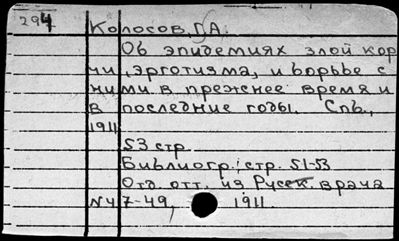 294
Колосов, Г.А.
Об эпидемиях злой кор
чи, эрготизма, и борьбе с
ними в прежнее время и
в последние годы. Спб.,
1911
53 стр.
Библиогр.: стр. 51-53
Отд. отт. из Русск. врача
№47-49, 1911.